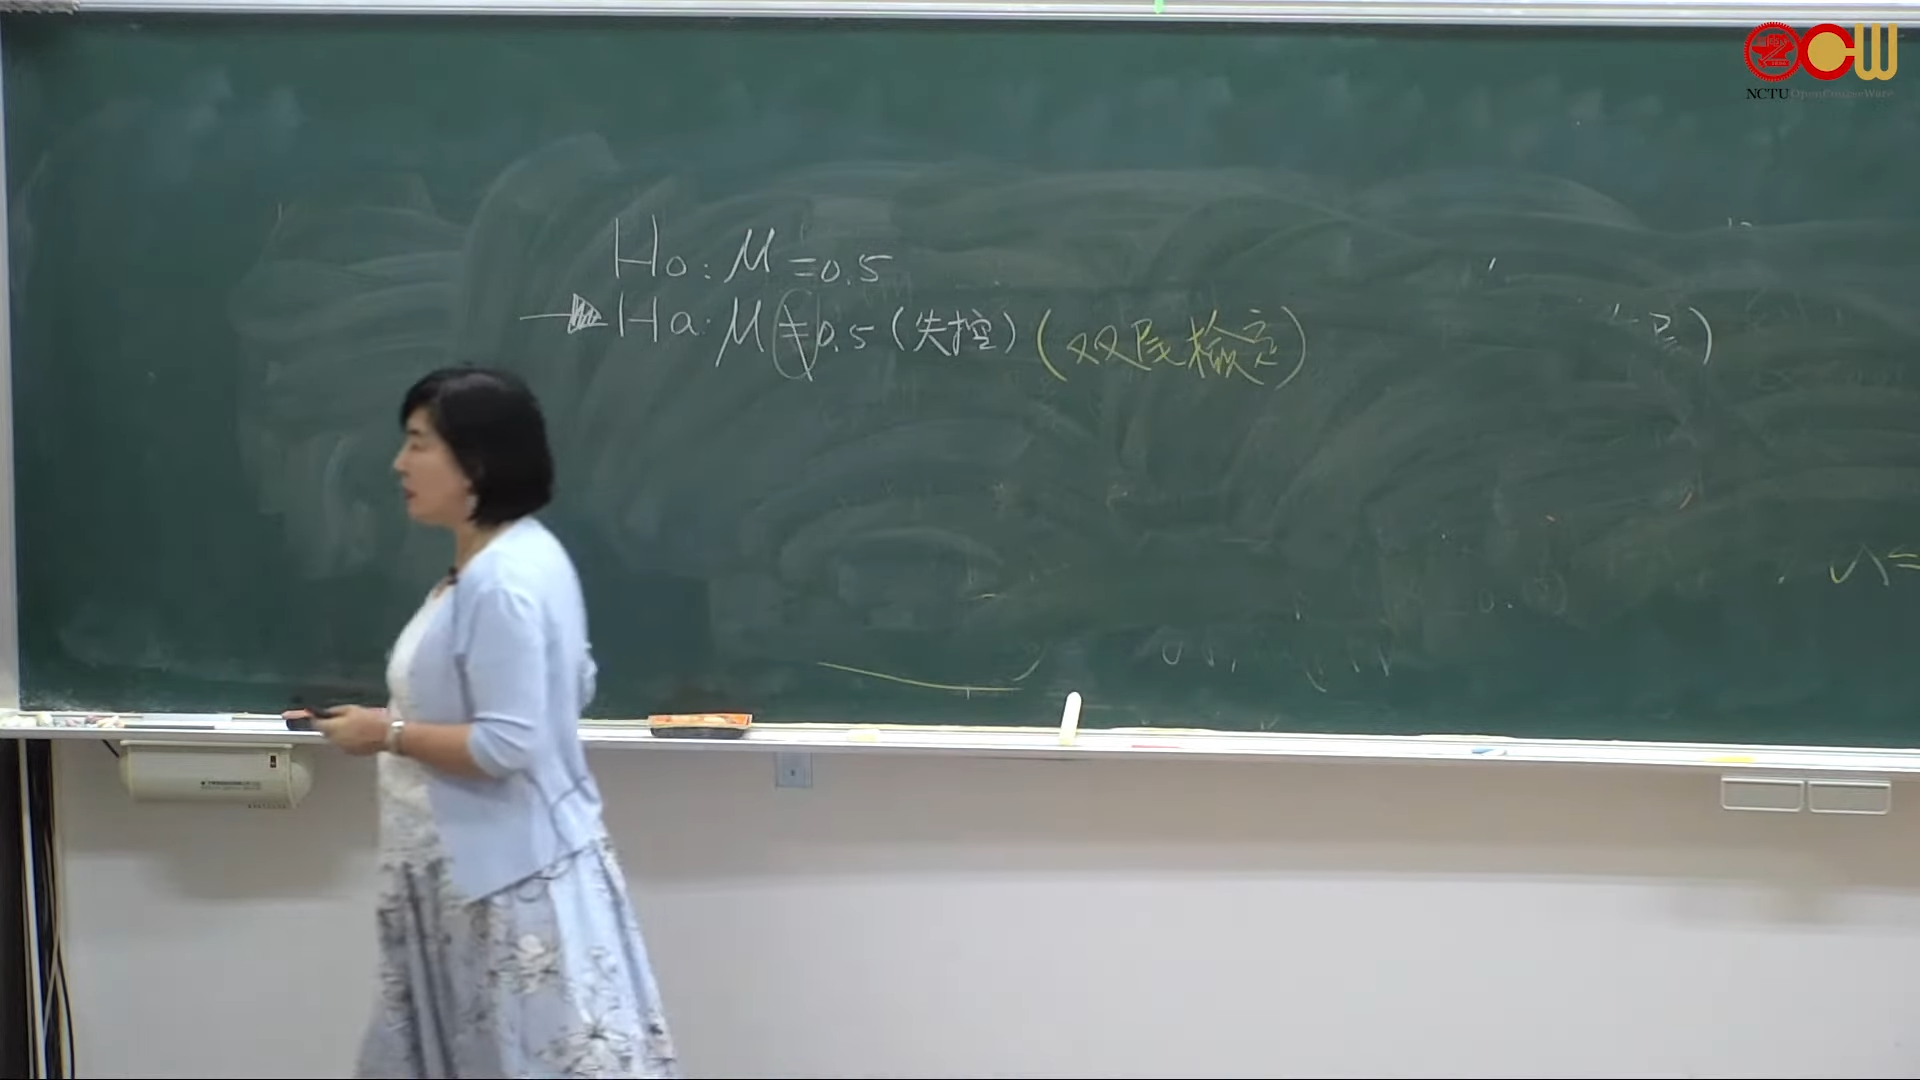 NCTU OpenCourseWare
H0: μ = 0.5
Ha: μ ≠ 0.5 (失控) (双尾檢定)